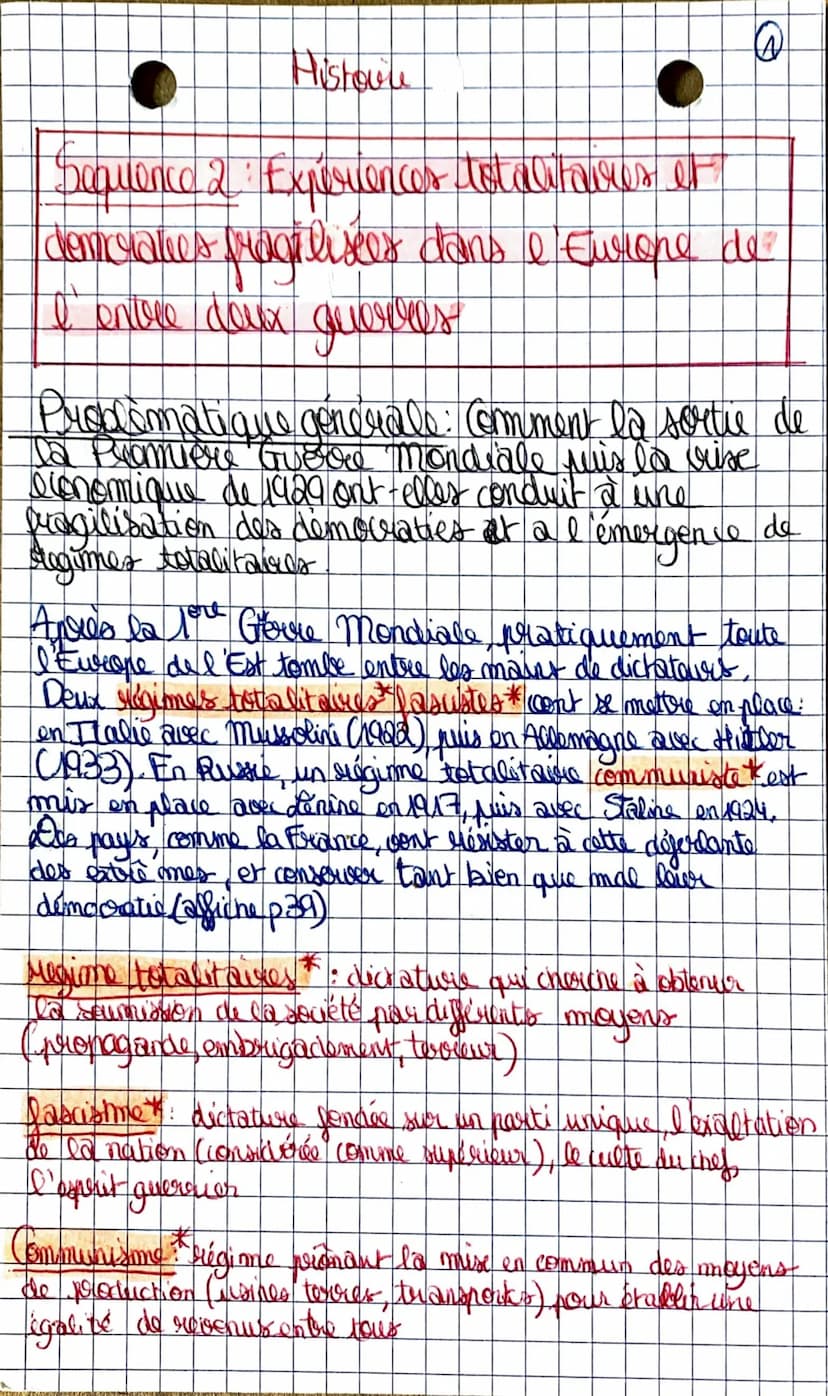 1
Histoire
Sequence 2 : Expériences totalitaires et
democraties fragilisées dans l'Europe de
l'entre deux guerres
Problèmatique générale : Comment la sortie de
la Première Guerre mondiale puis la crise
économique de 1929 ont-elles conduit à une
fragilisation des démocraties et a l'émergence de
regimes totalitaires.
Après la 1ere Guerre Mondiale, pratiquement toute
l'Europe de l'Est tombe entre les mains de dictateurs.
Deux régimes totalitaires* fascistes* vont se mettre en place :
en Italie avec Mussolini (1922), puis en Allemagne avec Hitler
(1933). En Russie, un régime totalitaire communiste* est
mis en place avec Lénine en 1917, puis avec Staline en 1924.
Des pays, comme la France, vont résister à cette déferlante
des extrêmes, et conserver tant bien que mal leur
démocratie (affiche p39)
Regime totalitaires* : dictature qui cherche à obtenir
la soumission de la société par différents moyens
(propagande, embrigadement, terreur)
fascisme* : dictature fondée sur un parti unique, l'exaltation
de la nation (considérée comme supérieur), le culte du chef,
l'esprit guerrier
Communisme :* régime prônant la mise en commun des moyens
de production (usines terres, transports) pour établir une
égalité de revenus entre tous